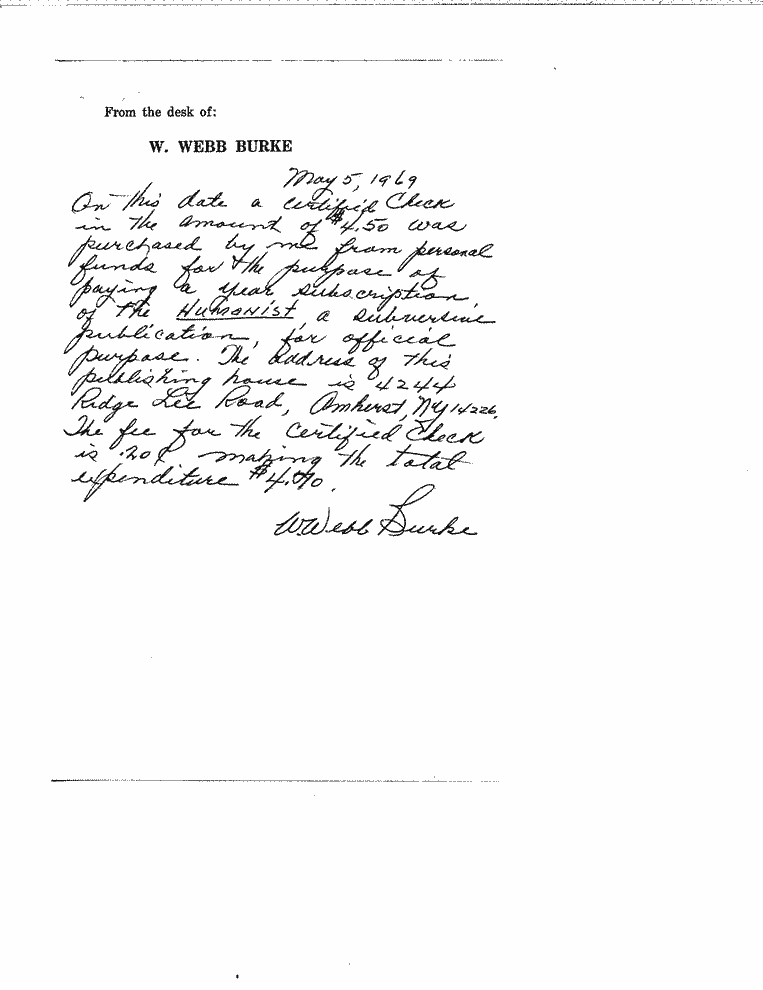 From the desk of:
W. WEBB BURKE
May 5, 1969
On this date a certified Check
in the amount of $4.50 was
purchased by me from personal
funds for the purpose of
paying a year subscription,
of the Humanist, a subversive
publication, for official
purpose. The address of this
publishing house is 4244
Ridge Lee Road, Amherst, NY 14226.
The fee for the Certified Check
is .20¢ making the total
expenditure $4.70.
W. Webb Burke